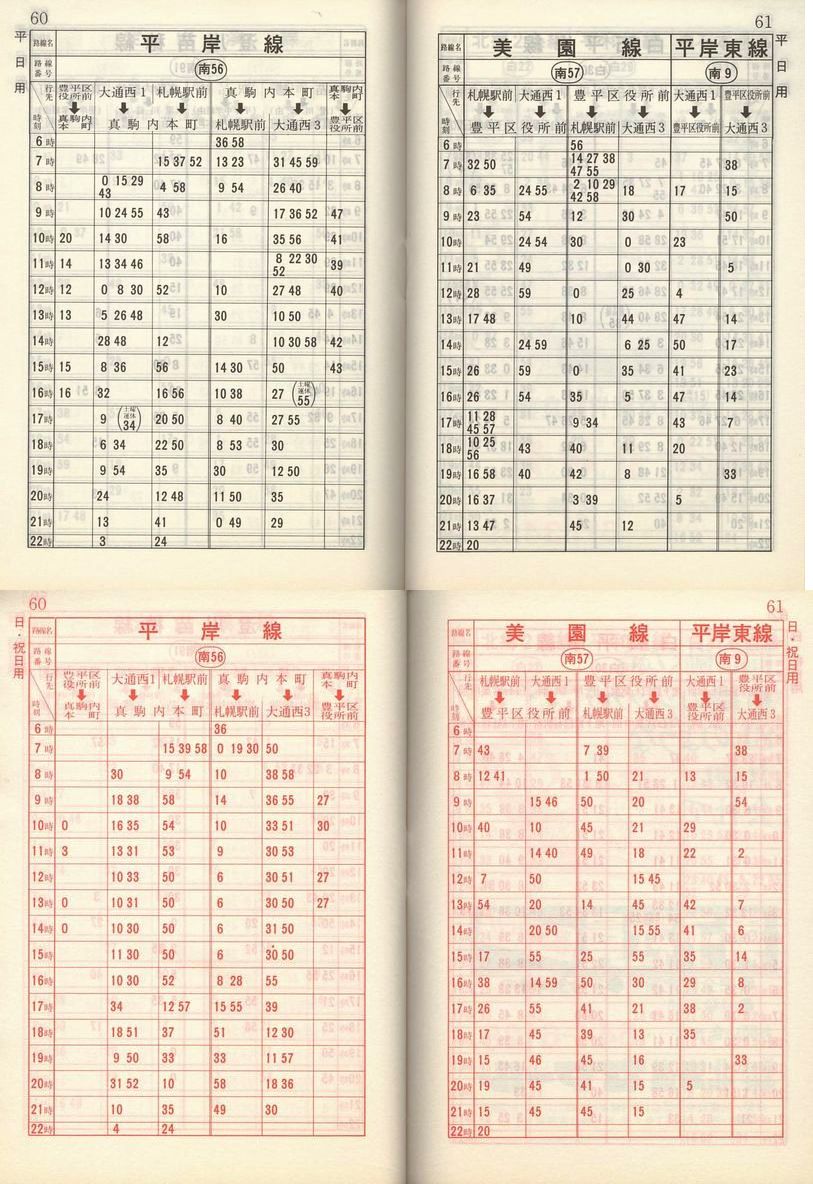 60
平日用
路線名 平岸線
路線番号 南56
行先 時刻 豊平区役所前 ↓ 真駒内本町 大通西1 札幌駅前 ↓ ↓ 真駒内本町 真駒内本町 ↓ ↓ 札幌駅前 大通西3 真駒内本町 ↓ 豊平区役所前
6時 36 58
7時 15 37 52 13 23 31 45 59
8時 0 15 29 43 4 58 9 54 26 40
9時 10 24 55 43 17 36 52 47
10時 20 14 30 58 16 35 56 41
11時 14 13 34 46 8 22 30 52 39
12時 12 0 8 30 52 10 27 48 40
13時 13 5 26 48 30 10 50
14時 28 48 12 10 30 58 42
15時 15 8 36 56 14 30 50 43
16時 16 32 16 56 10 38 27 (土曜運休55)
17時 9 (土曜運休34) 20 50 8 40 27 55
18時 6 34 22 50 8 53 30
19時 9 54 35 30 12 50
20時 24 12 48 11 50 35
21時 13 41 0 49 29
22時 3 24
61
平日用
路線名 美園線 平岸東線
路線番号 南57 南9
行先 時刻 札幌駅前 大通西1 ↓ ↓ 豊平区役所前 豊平区役所前 ↓ ↓ 札幌駅前 大通西3 大通西1 ↓ 豊平区役所前 豊平区役所前 ↓ 大通西3
6時 56
7時 32 50 14 27 38 47 55 38
8時 6 35 24 55 2 10 29 42 58 18 17 15
9時 23 54 12 30 50
10時 24 54 30 0 23
11時 21 49 0 30 5
12時 28 59 0 25 4
13時 17 48 10 44 47 14
14時 24 59 6 25 50 17
15時 26 59 0 35 41 23
16時 26 54 35 5 47 14
17時 11 28 45 57 9 34 43 7
18時 10 25 56 43 40 11 20
19時 16 58 40 42 8 33
20時 16 37 3 39 5
21時 13 47 45 12
22時 20
60
日・祝日用
路線名 平岸線
路線番号 南56
行先 時刻 豊平区役所前 ↓ 真駒内本町 大通西1 札幌駅前 ↓ ↓ 真駒内本町 真駒内本町 ↓ ↓ 札幌駅前 大通西3 真駒内本町 ↓ 豊平区役所前
6時 36
7時 15 39 58 0 19 30 50
8時 30 9 54 10 38 58
9時 18 38 58 14 36 55 27
10時 0 16 35 54 10 33 51 30
11時 3 13 31 53 9 30 53
12時 10 33 50 6 30 51 27
13時 0 10 31 50 6 30 50 27
14時 0 10 30 50 6 31 50
15時 11 30 50 6 30 50
16時 10 30 52 8 28 55
17時 34 12 57 15 55 39
18時 18 51 37 51 12 30
19時 9 50 33 33 11 57
20時 31 52 10 58 18 36
21時 10 35 49 30
22時 4 24
61
日・祝日用
路線名 美園線 平岸東線
路線番号 南57 南9
行先 時刻 札幌駅前 大通西1 ↓ ↓ 豊平区役所前 豊平区役所前 ↓ ↓ 札幌駅前 大通西3 大通西1 ↓ 豊平区役所前 豊平区役所前 ↓ 大通西3
6時
7時 43 7 39 38
8時 12 41 1 50 21 13 15
9時 15 46 50 20 54
10時 40 10 45 21 29
11時 14 40 49 18 22 2
12時 7 50 15 45
13時 54 20 14 45 42 7
14時 20 50 15 55 41 6
15時 17 55 25 55 35 14
16時 38 14 59 50 30 29 8
17時 26 55 41 21 38 2
18時 17 45 39 13 35
19時 15 46 45 16 33
20時 19 45 41 15 5
21時 15 45 45 15
22時 20